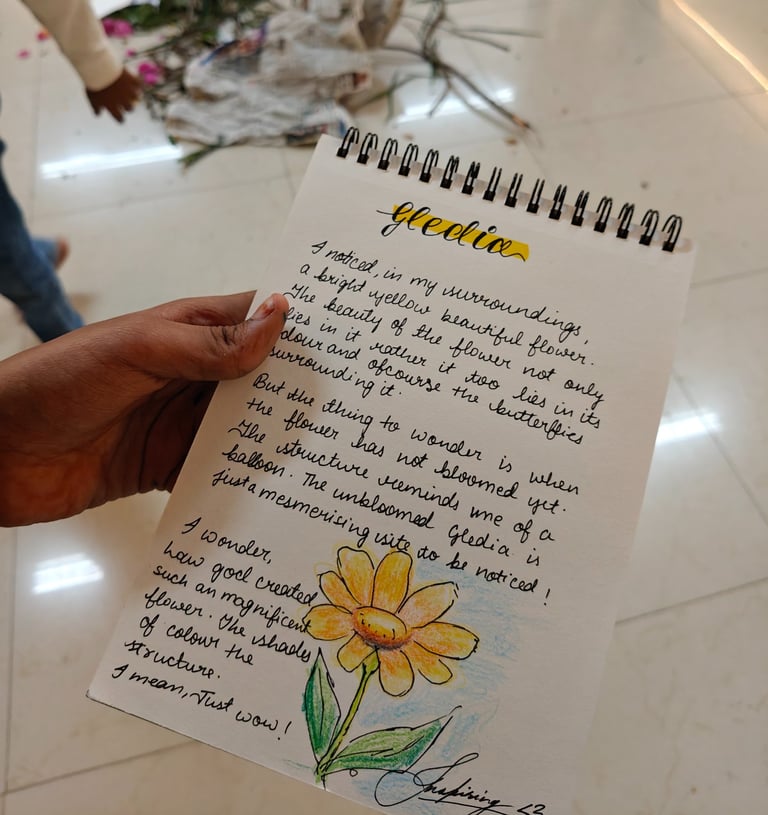 gledia
I noticed, in my surroundings,
a bright yellow beautiful flower.
The beauty of the flower not only
lies in it rather it too lies in its
dour and ofcourse the butterflies
surrounding it.
But the thing to wonder is when
the flower has not bloomed yet.
The structure reminds me of a
balloon. The unbloomed Gledia is
just a mesmerising site to be noticed!
I wonder,
how god created
such an magnificent
flower. The shades
of colour the
structure.
I mean, Just wow!